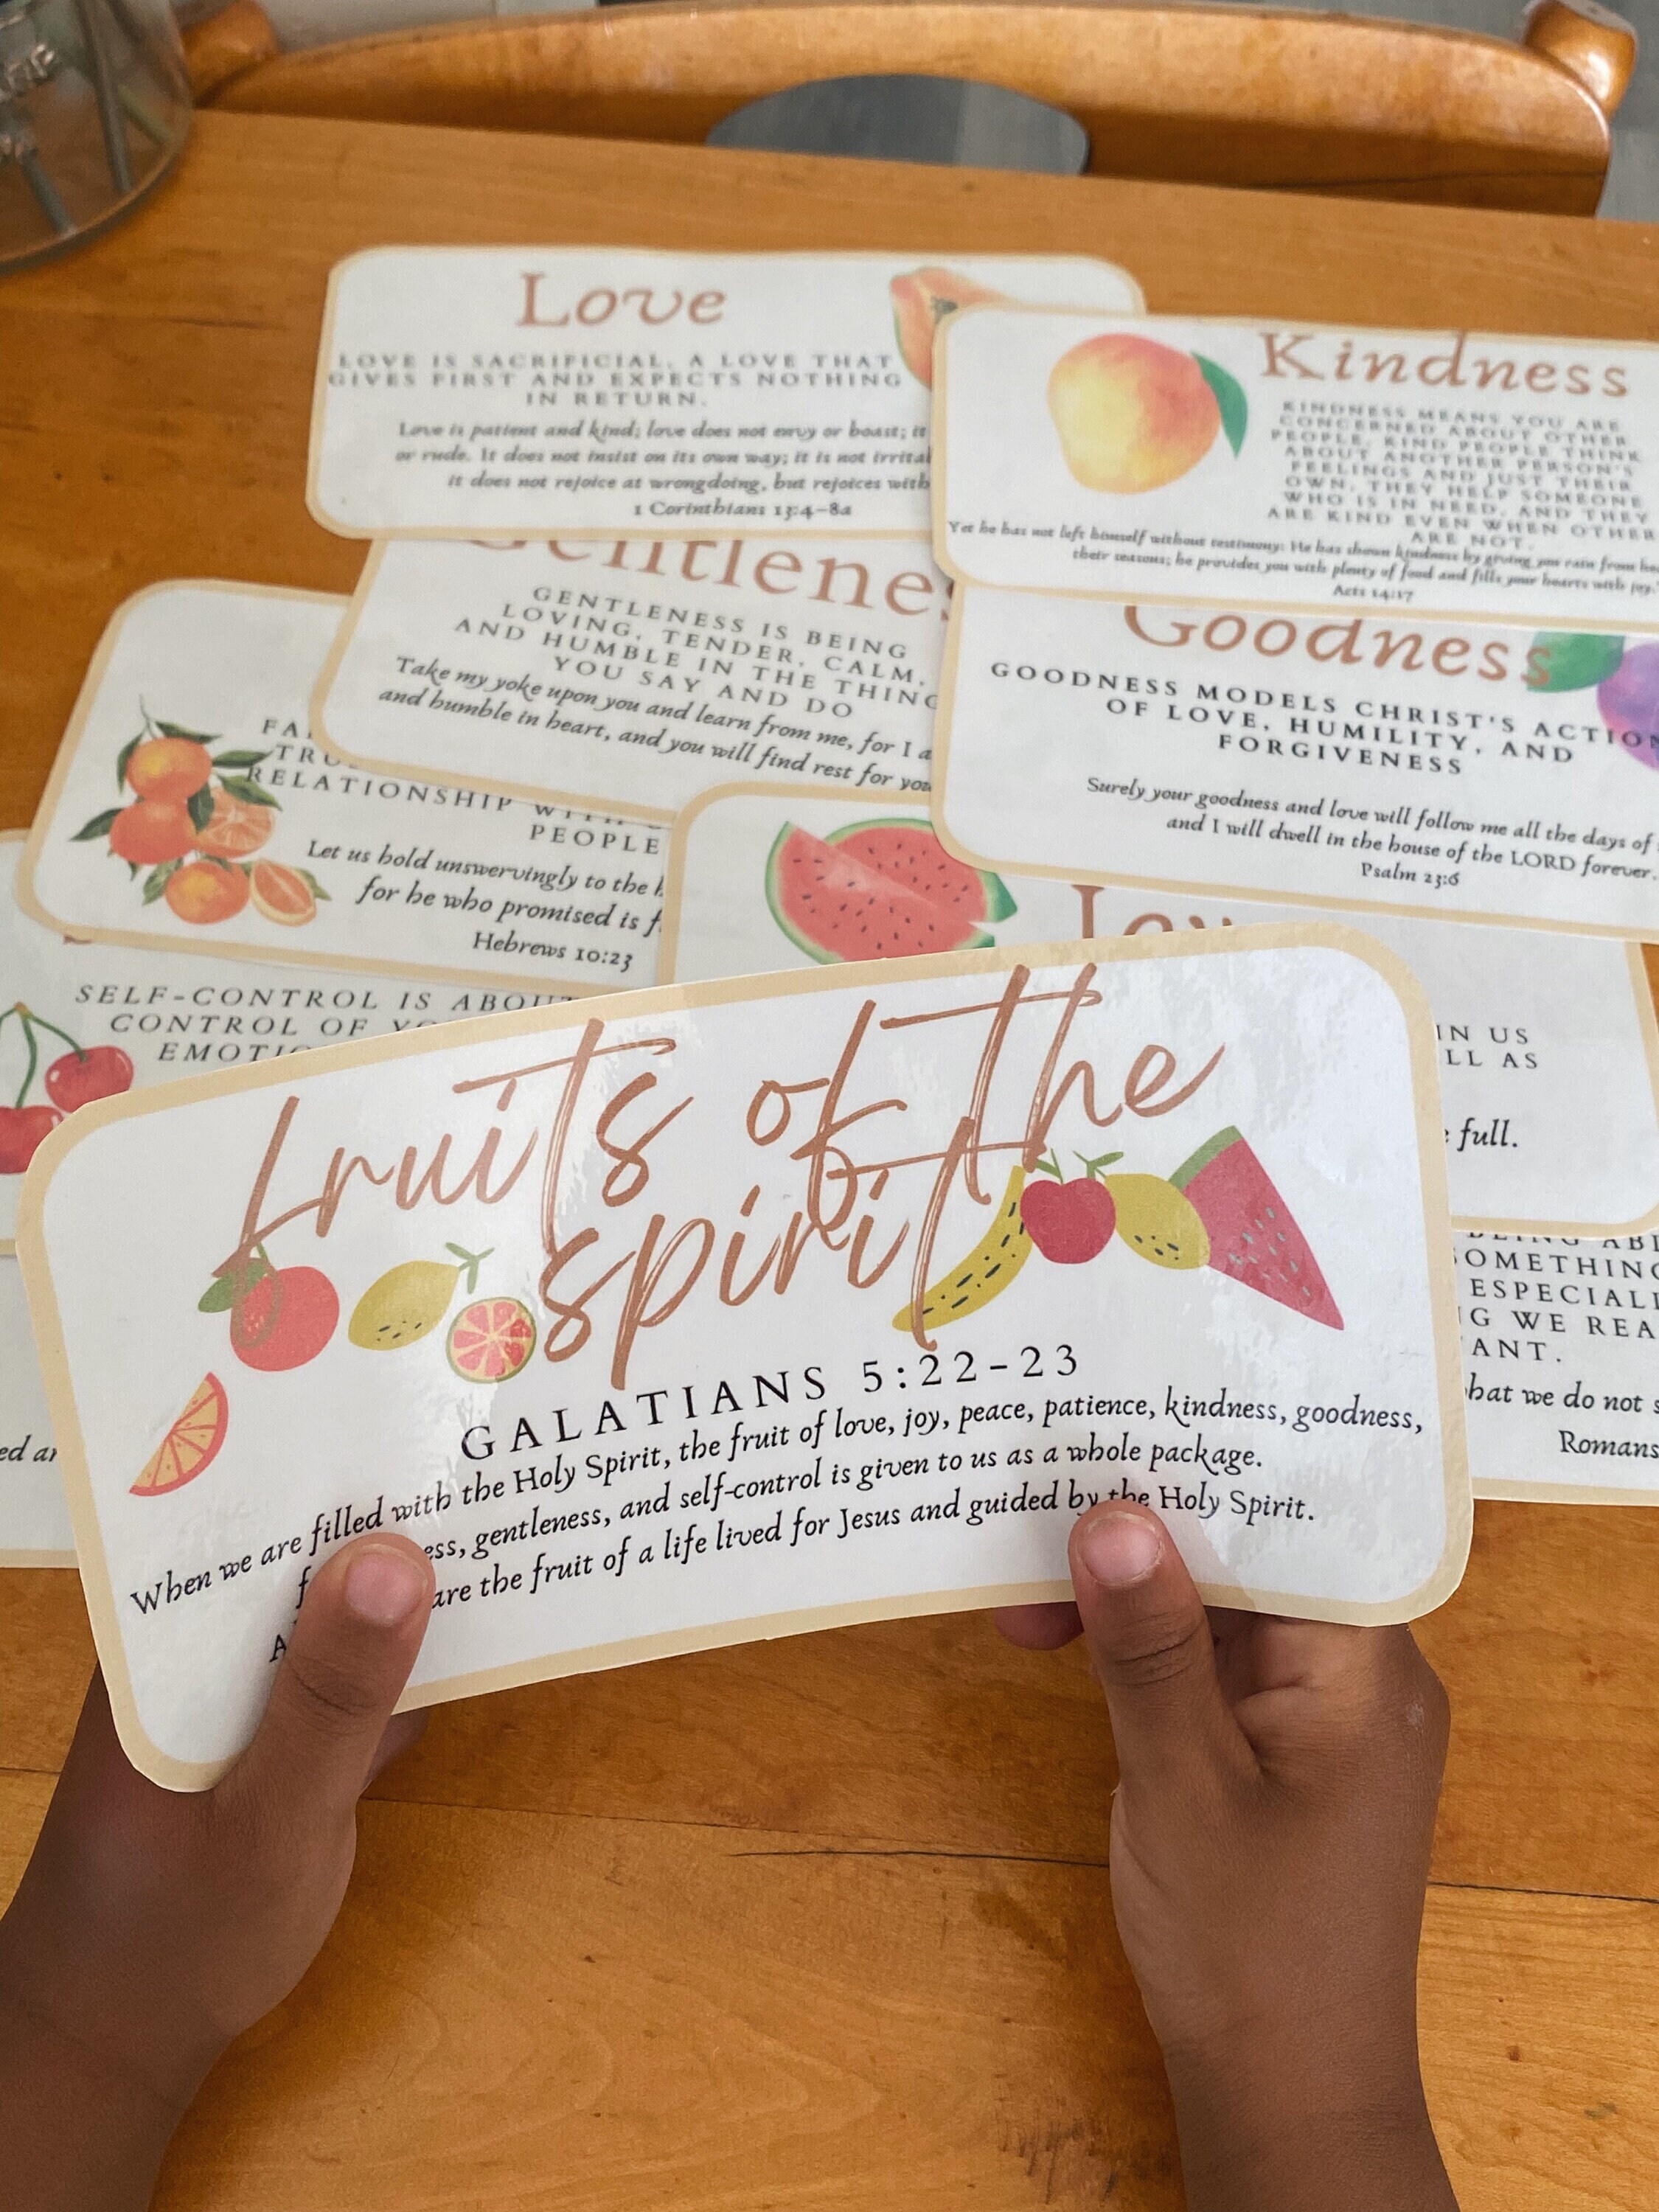 Love
LOVE IS SACRIFICIAL, A LOVE THAT
GIVES FIRST AND EXPECTS NOTHING
IN RETURN.
Love is patient and kind; love does not envy or boast; it
or rude. It does not insist on its own way; it is not
it does not rejoice at wrongdoing, but rejoices with
1 Corinthians 13:4-8a
Kindness
KINDNESS MEANS YOU ARE
CONCERNED ABOUT OTHER
PEOPLE. KIND PEOPLE THINK
ABOUT ANOTHER PERSON'S
FEELINGS AND JUST THEIR
OWN, THEY HELP SOMEONE
WHO IS IN NEED, AND THEY
ARE KIND EVEN WHEN OTHER
ARE NOT.
Yet he has not left himself without testimony: He has shown kindness by giving you rain from
their seasons; he provides you with plenty of food and fills your hearts with joy.
Acts 14:17
GENTLENESS IS BEING
LOVING, TENDER, CALM,
AND HUMBLE IN THE THING
YOU SAY AND DO
Take my yoke upon you and learn from me, for I a
and humble in heart, and you will find rest for you
Goodness
GOODNESS MODELS CHRIST'S ACTION
OF LOVE, HUMILITY, AND
FORGIVENESS
Surely your goodness and love will follow me all the days of
and I will dwell in the house of the LORD forever.
Psalm 23:6
FA
TRU
RELATIONSHIP WITH
PEOPLE
Let us hold unswervingly to the h
for he who promised is f
Hebrews 10:23
Joy
IN US
LL AS
full.
SELF-CONTROL IS ABOUT
CONTROL OF YO
EMOTIO
fruits of the
spirit
GALATIANS 5:22-23
When we are filled with the Holy Spirit, the fruit of love, joy, peace, patience, kindness, goodness,
f ess, gentleness, and self-control is given to us as a whole package.
A are the fruit of a life lived for Jesus and guided by the Holy Spirit.
BEING ABL
SOMETHING
ESPECIALL
G WE REA
ANT.
hat we do not s
Romans
ed an